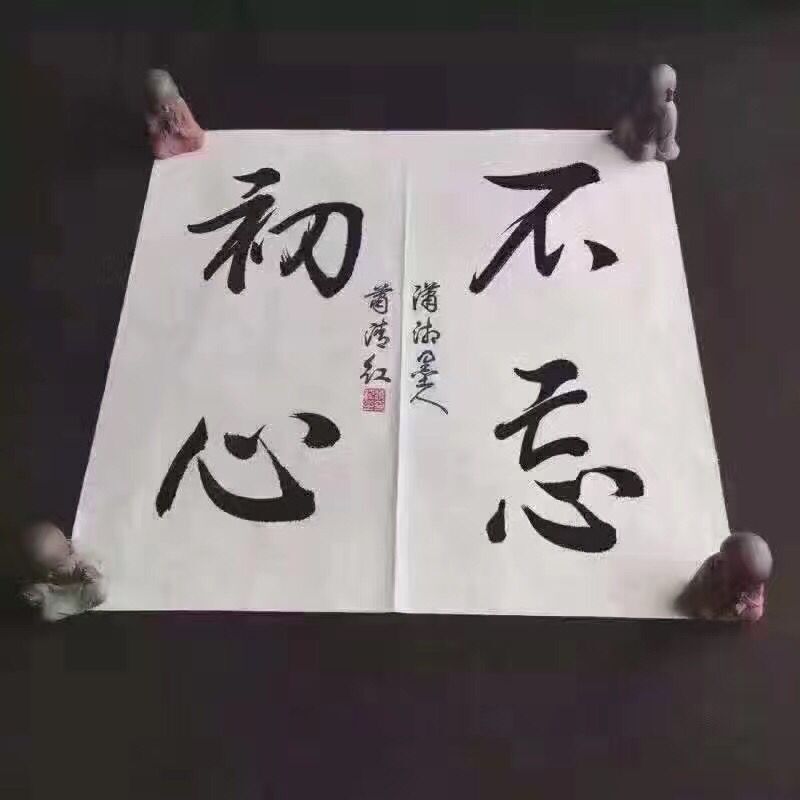 不忘
初心
潇湘墨人
萧清红